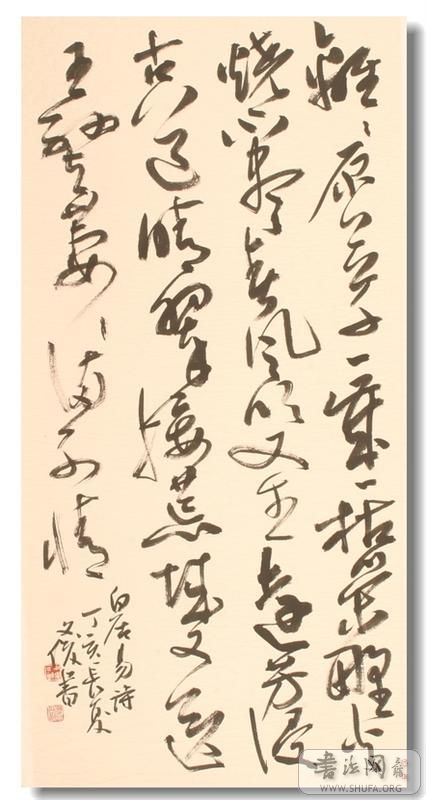 離〻原上草一歲一枯榮野火
燒不盡春風吹又生遠芳侵
古道晴翠接荒城又送
王孫去萋〻滿別情
白居易詩
丁亥長夏
書
書法网
WWW.SHUFA.ORG